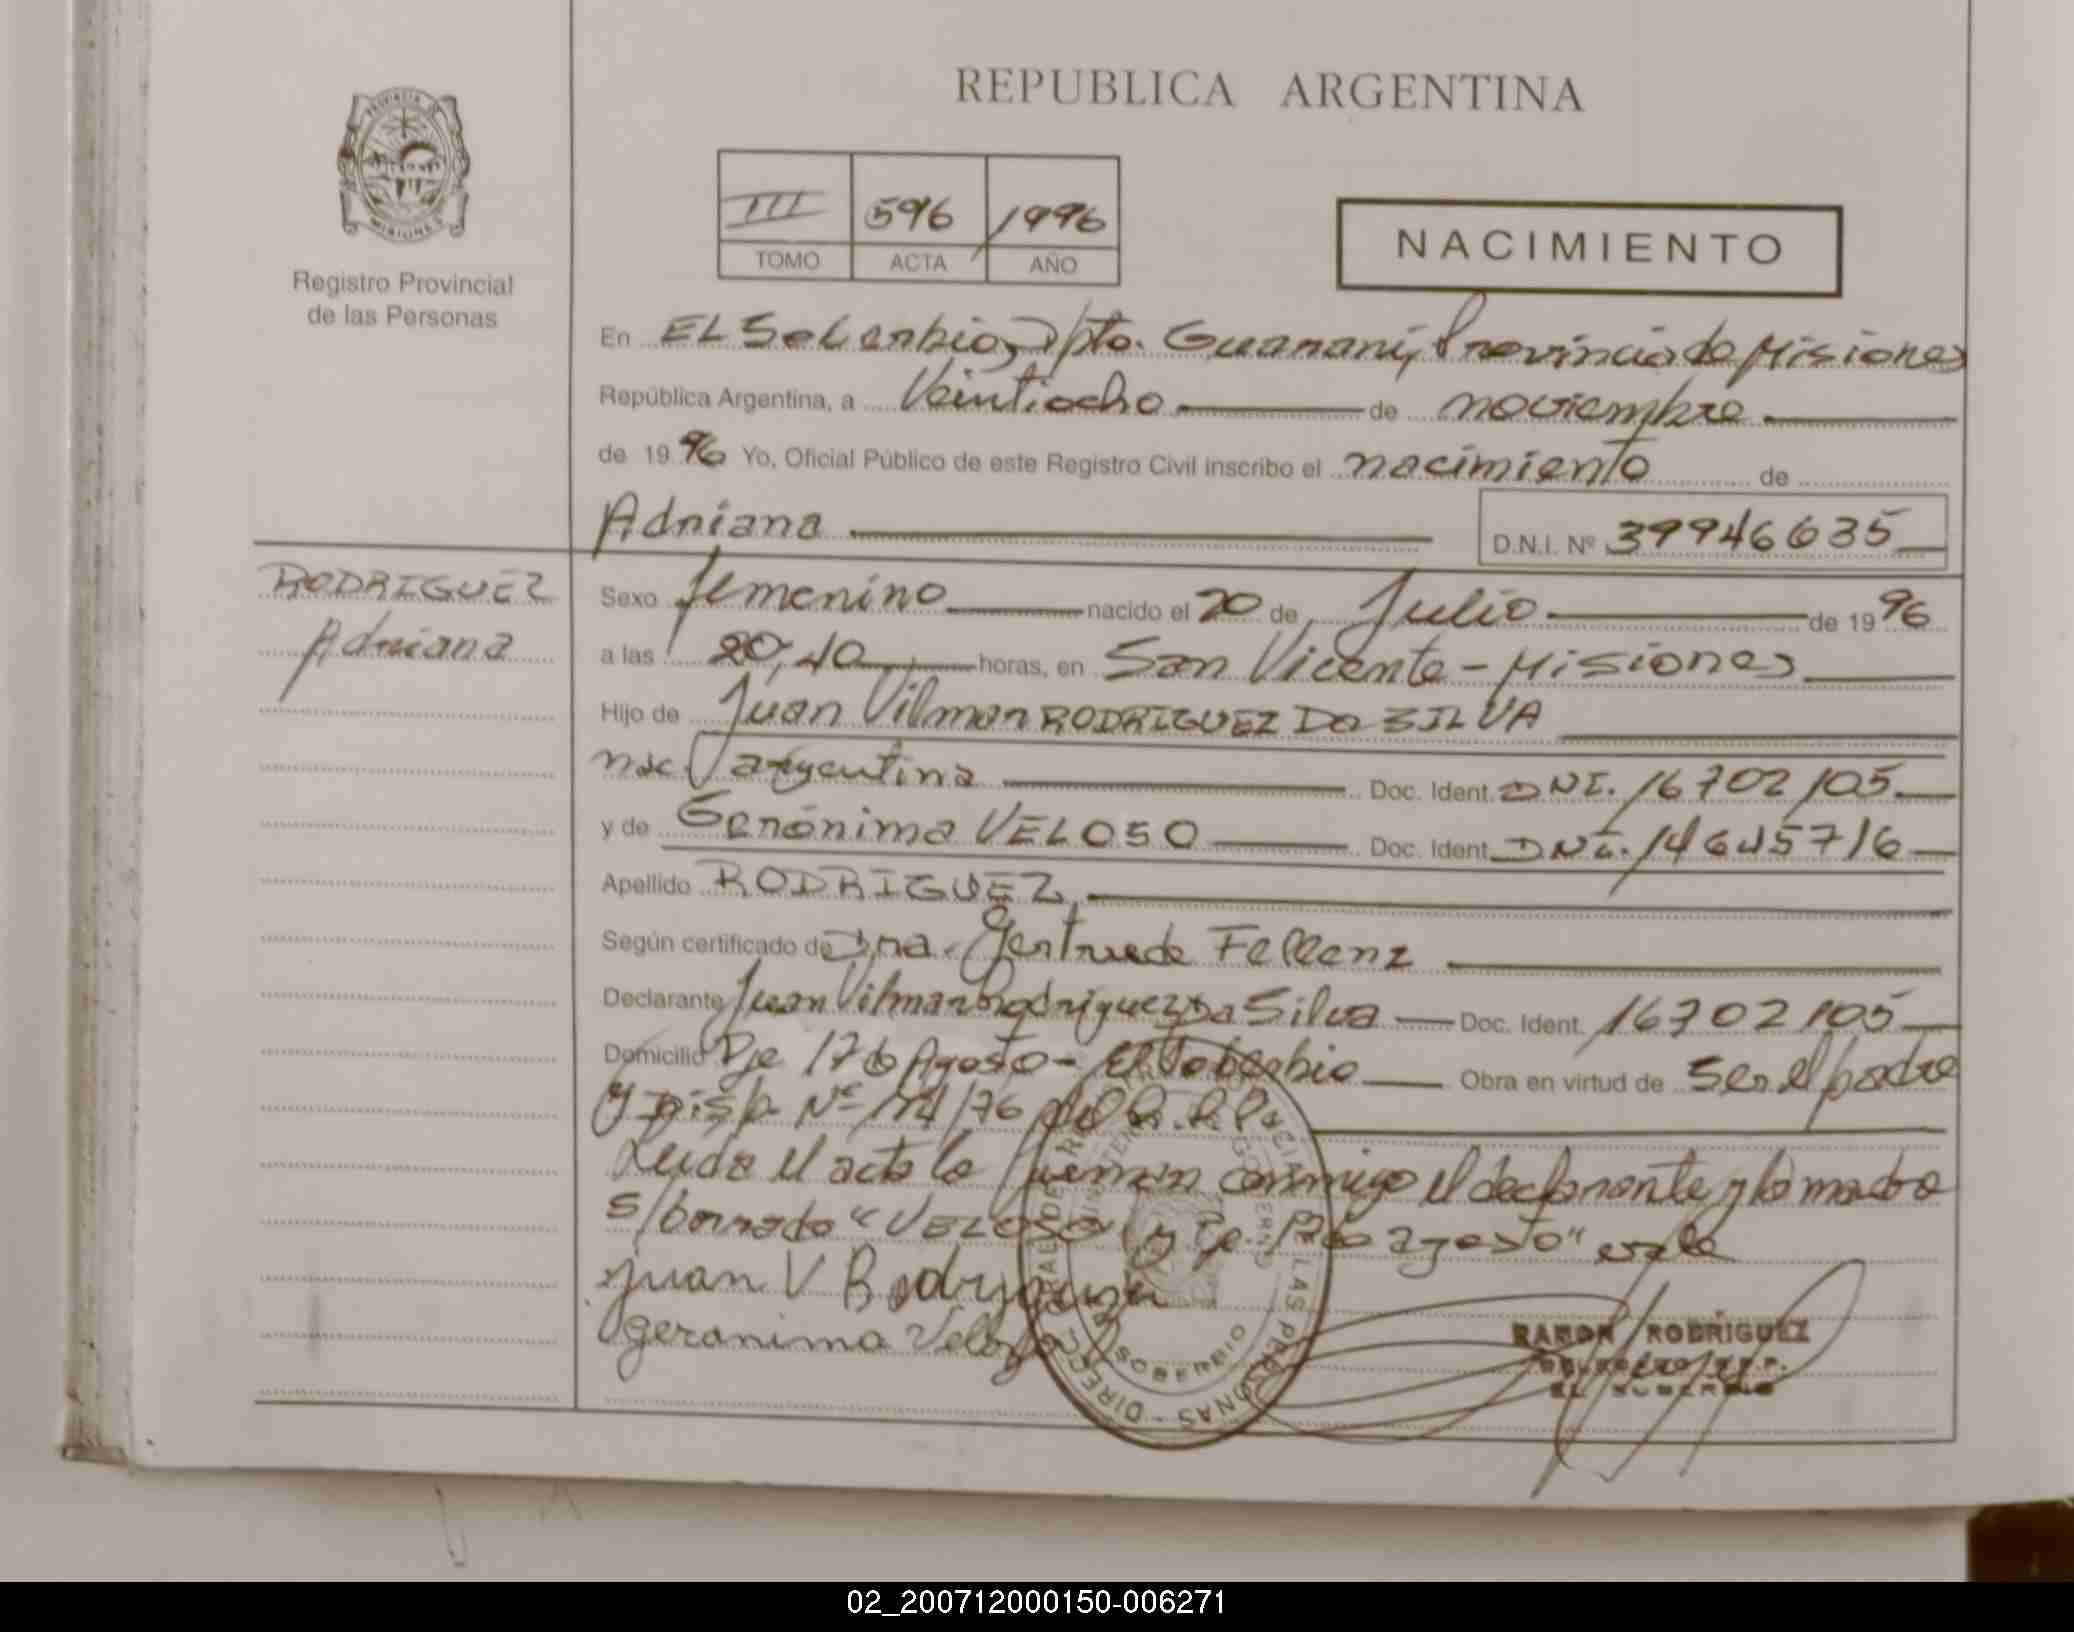 REPUBLICA ARGENTINA
PROVINCIA DE MISIONES
Registro Provincial
de las Personas
III 596 1996
TOMO ACTA AÑO
NACIMIENTO
En EL Soberbio, Dpto. Guaraní, Provincia de Misiones
República Argentina, a Veintiocho de noviembre
de 19 96 Yo, Oficial Público de este Registro Civil inscribo el nacimiento de
Adriana D.N.I. Nº 39946635
RODRIGUEZ
Adriana
Sexo femenino nacido el 20 de Julio de 19 96
a las 20,40 horas, en San Vicente - Misiones
Hijo de Juan Vilmar RODRIGUEZ Da SILVA
nac. argentina Doc. Ident. DNI. 16702105
y de Gerónima VELOSO Doc. Ident. DNI.
Apellido RODRIGUEZ
Según certificado de Dra. Gertrude Fellenz
Declarante Juan Vilmar Rodriguez Da Silva Doc. Ident. 16702105
Domicilio Pje 17 de Agosto - El Soberbio Obra en virtud de ser el padre
y Disp. Nº /76 del R.P.P.
Leida el acta la firman conmigo el declarante y la madre
S/borrado "VELOSO y Pje. 17 de agosto" vale
Juan V Rodriguez
geranima Veloso
RAMON RODRIGUEZ
EL SOBERBIO
DIRECCION LAS PERSONAS
SOBERBIO
02_200712000150-006271